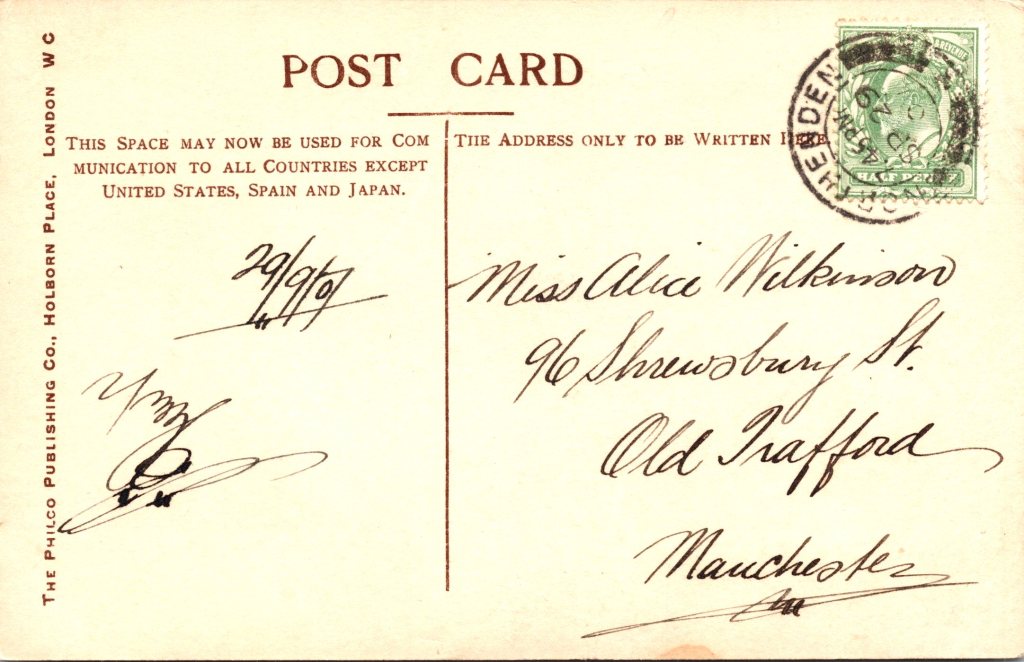 POST CARD
THIS SPACE MAY NOW BE USED FOR COM
MUNICATION TO ALL COUNTRIES EXCEPT
UNITED STATES, SPAIN AND JAPAN.
THE ADDRESS ONLY TO BE WRITTEN HERE
THE PHILCO PUBLISHING CO., HOLBORN PLACE, LONDON W C
HALF PENNY
NORTHENDEN
45 PM
29
Miss Alice Wilkinson
96 Shrewsbury St.
Old Trafford
Manchester